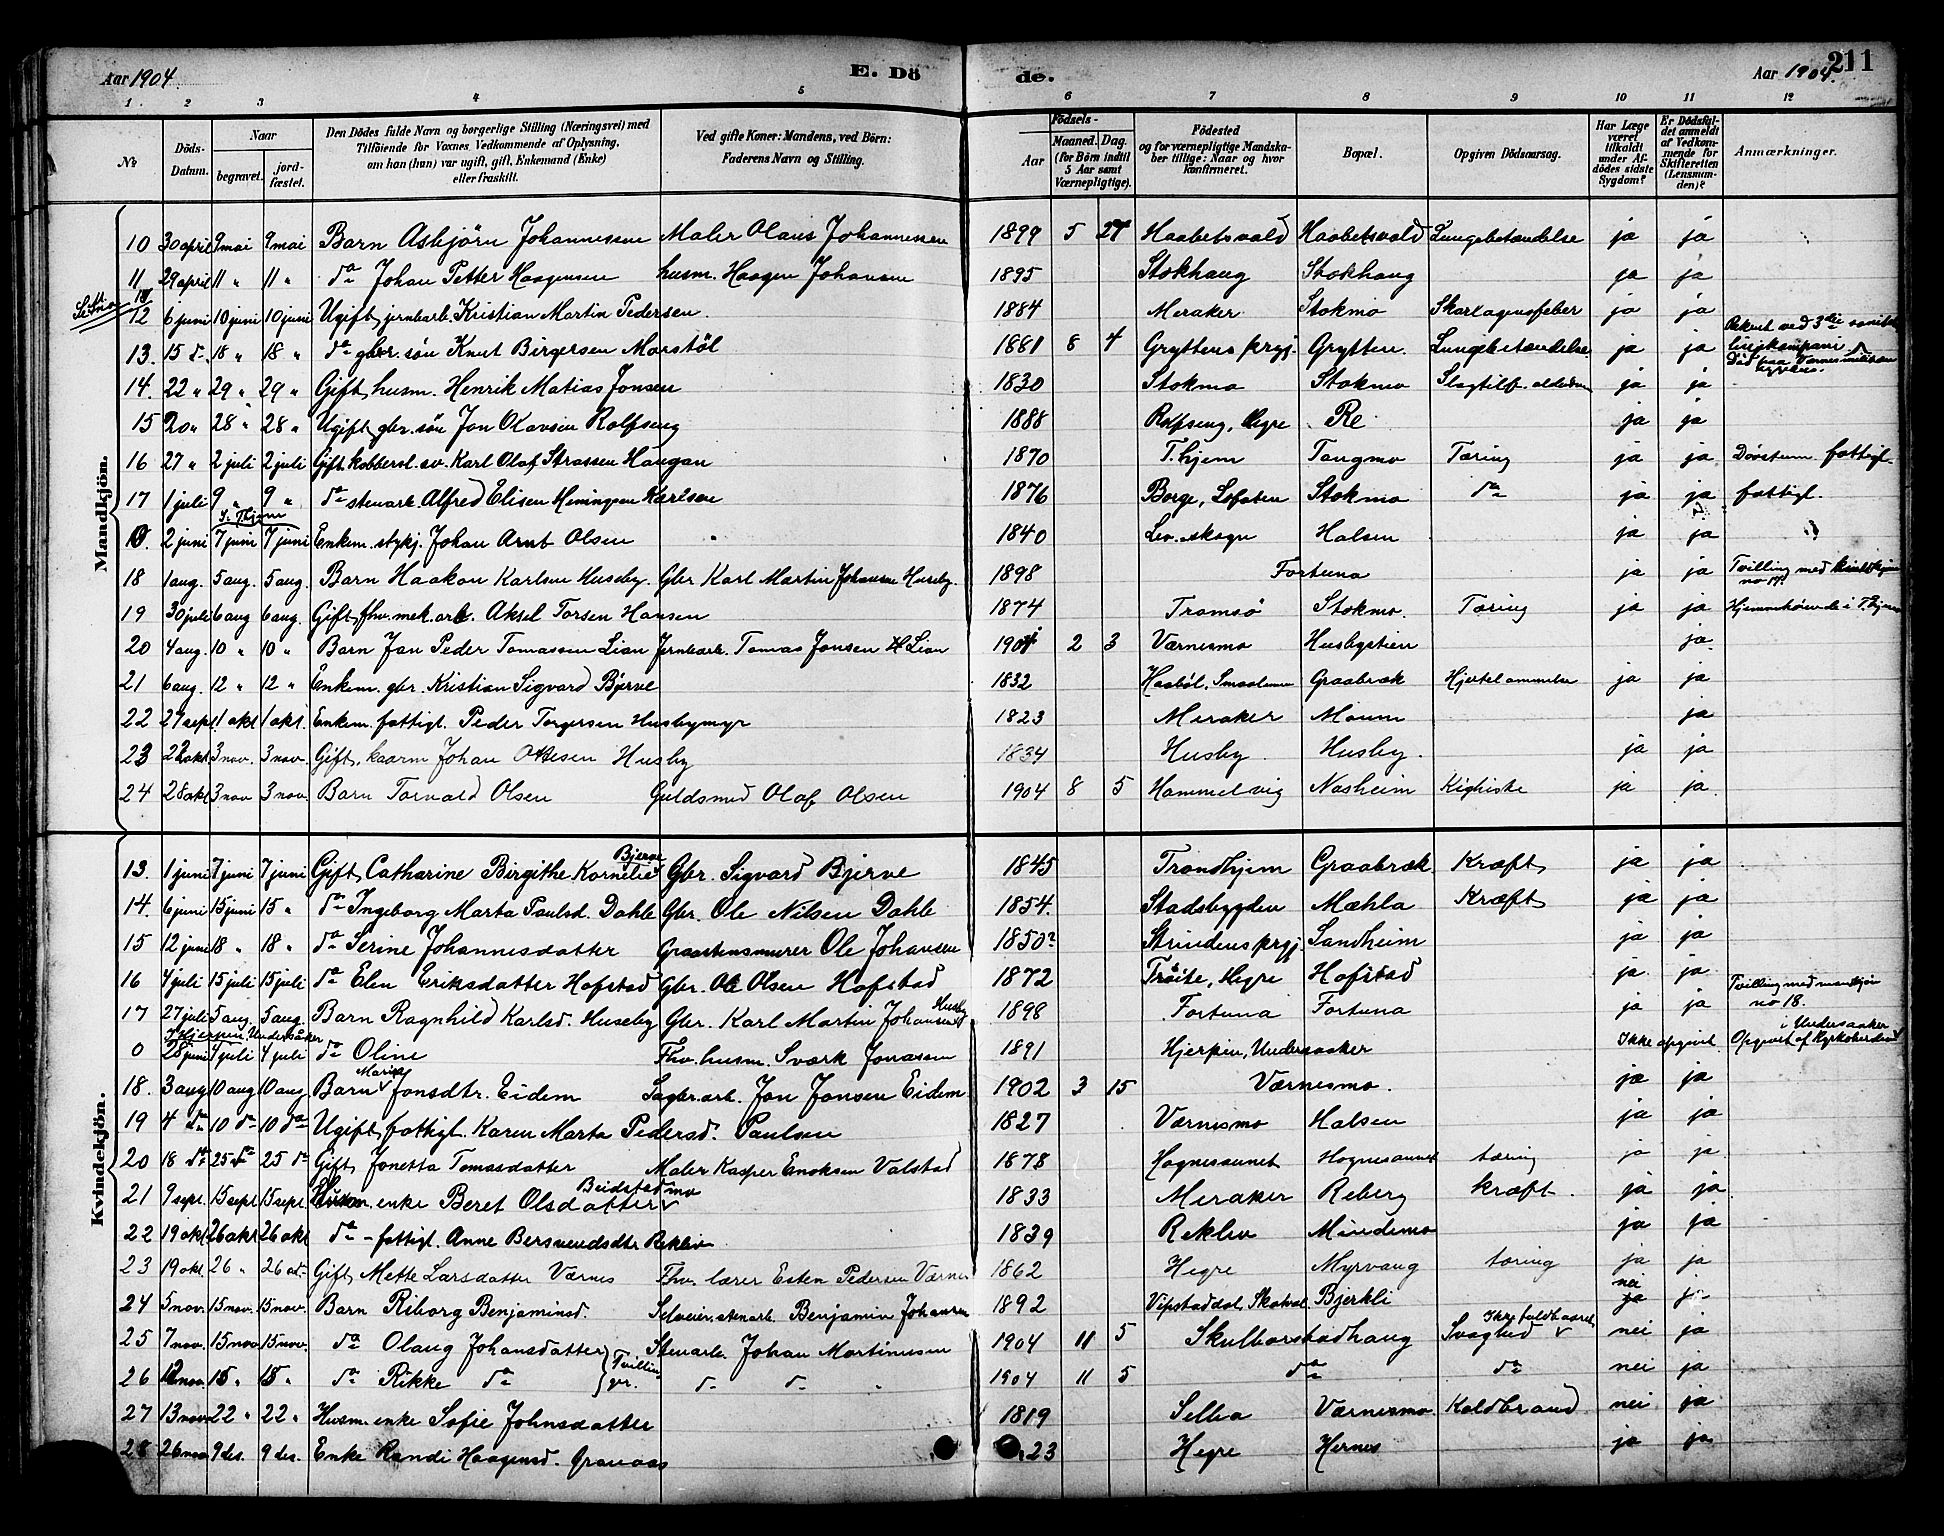 Aar 1904. E. Dö de. Aar 1904. 211
1. 2 3 4 5 6 7 8 9 10 11 12
No Döds-Datum. Naar begravet. jordfæstet. Den Dödes fulde Navn og borgerlige Stilling (Næringsvei) med Tilföiende for Voxnes Vedkommende af Oplysning, om han (hun) var ugift, gift, Enkemand (Enke) eller fraskilt. Ved gifte Koner: Mandens, ved Börn: Faderens Navn og Stilling. Födsels- Aar Maaned. Dag. (for Börn indtil 5 Aar samt Værnepligtige). Födested og for værnepligtige Mandskaber tillige: Naar og hvor konfirmeret. Bopæl. Opgiven Dödsaarsag. Har Læge været tilkaldt under Afdödes sidste Sygdom? Er Dödsfaldet anmeldt af Vedkommende for Skifteretten (Lensmanden)? Anmærkninger.
Mandkjön.
10 30 april 9 mai 9 mai Barn Asbjörn Johannessen Maler Olaus Johannessen 1899 5 27 Haabetsvold Haabetsvold Lungebetændelse ja ja
11 29 april 11 " 11 " do Johan Petter Haagensen husm. Haagen Johansen 1895 Stokhaug Stokhaug ja ja
12 6 juni 10 juni 10 juni Ugift, jernbarb. Kristian Martin Pedersen. 1884 Meraker Stokmo Skarlagensfeber ja ja
13. 15 d. 18 " 18 " do gbr. sön Knut Birgersen Marstöl 1881 8 4 Gryttens prgj. Grytten. Lungebetændelse ja ja Rekrut ved 3die
14. 22 " 29 " 29 " Gift, husm. Henrik Matias Jonsen 1830 Stokmo Stokmo Slagtilf. ja ja
15 20 " 28 " 28 " Ugift, gbr. sön Jon Olavsen Rolfseng 1888 Rolfseng, Hegre Re ja ja
16 27 " 2 juli 2 juli Gift kobbersl. sv. Karl Olaf Strassen Haugan 1870 T.hjem Tangmo Tæring ja ja fattigl.
17 1 juli 9 " 9 " do stenarb. Alfred Elisen Heningsen Karlsen 1876 Borge, Lofoten Stokmo do ja ja fattigl.
0. 2 juni 7 juni 7 juni Enkem. stykj. Johan Arnt Olsen 1840 Lev. skogn Halsen ja ja
18 1 aug. 5 aug. 5 aug. Barn Haakon Karlsen Huseby. Gbr. Karl Martin Johansen Huseby. 1898 Fortuna ja ja Tvilling med kvindekjön no 17.
19 30 juli 6 aug 6 aug. Gift, fhv. mek. arb. Aksel Torsen Hansen 1874 Tromsö Stokmo. Tæring ja ja Hjemmehörende i T.hjem
20 4 aug. 10 " 10 " Barn Jon Peder Tomassen Lian Jernbarb. Tomas Jonsen Lian 1904 2 3 Værnesmo Husbystien ja.
21 6 aug. 12 " 12 " Enkem. gbr. Kristian Sigvard Bjerve 1832 Haaböl, Smaalenene Graabræk Hjertelammelse ja ja
22 27 sept. 1 okt 1 okt. Enkem. fattigl. Peder Torgersen Husbymyr 1823 Meraker Moum ja
23 22 okt. 3 nov. 3 nov. Gift, kaarm Johan Ottesen Husby 1834 Husby Husby. ja ja
24 28 okt 3 nov 3 nov. Barn Torvald Olsen Guldsmed Olaf Olsen 1904 8 5 Hammelvig Nasheim Kighoste ja ja
Kvindekjön.
13. 1 juni 7 juni 7 juni Gift, Catharine Birgithe Kornelie Bjerve Gbr. Sigvard Bjerve 1845 Trondhjem Graabræk Kræft ja ja
14. 6 juni 15 juni 15 " do Ingeborg Marta Paulsd. Dahle Gbr. Ole Nilsen Dahle 1854. Stadsbygden Mæhla Kræft ja ja
15 12 juni 18 " 18 " do Serine Johannesdatter Graastensmurer Ole Johansen 1850? Strindens prgj. Sandheim ja ja
16 4 juli 15 juli 15 juli do Elen Eriksdatter Hofstad Gbr. Ole Olsen Hofstad 1872 Tröite, Hegre Hofstad ja ja
17 27 juli 5 aug. 5 aug. Barn Ragnhild Karlsd. Huseby Gbr. Karl Martin Johansen Huseby 1898 Fortuna Fortuna ja ja Tvilling med mandkjön no 18.
Hjerpen, Undersåker
0 28 juni 4 juli 4 juli do Oline Fhv. husm. Sværk Jonassen 1891 Hjerpen, Undersaaker Ikke opgivet. Opgivet af Kyrkoherden i Undersaaker
18. 3 aug 10 aug 10 aug Barn Marie Jonsdtr. Eidem Sagbr. arb. Jon Jonsen Eidem. 1902 3 15 Værnesmo. ja ja
19 4 do 10 do 10 do Ugift, fattigl. Karen Marta Pedersd. Paulsen 1827 Værnesmo Halsen ja ja
20 18 do 25 do 25 do Gift, Jonetta Tomasdatter Maler Kasper Enoksen Valstad 1878 Hognesaunet Hognesaunet tæring ja ja
21 9 sept. 15 sept 15 sept. Husm. enke Beret Olsdatter Beidstadmo 1833 Meraker Reberg kræft. ja ja
22 19 okt 26 okt 26 okt do - fattigl. Anne Bersvendsdtr Reklev 1839 Reklev Mindemo ja ja
23 19 okt. 26 " 26 ok. Gift Mette Larsdatter Værnes Fhv. lærer Esten Pedersen Værnes 1862 Hegre Myrvang tæring ja ja
24 5 nov. 15 nov. 15 nov. Barn Riborg Benjaminsd. Selveier, stenarb. Benjamin Johansen 1892 Vipstaddal, Skatval Bjerkli nei ja
25 7 nov. 15 nov. 15 nov. do Olaug Johansdatter Stenarb. Johan Martinusen 1904 11 5 Skulborstadhaug Svaghed Ikke fuldbaaret nei ja
26 12 nov. 15 " 15 " do Rikke do Tvilling d. d. 1904 11 5 do do nei ja
27 13 nov 22 " 22 " Husm. enke Sofie Johnsdatter 1819 Selbu Værnesmo Koldbrand nei ja
28 26 nov 9 des. 9 des. Enke Randi Haagensd. Granaas 23 Hegre Hernes ja ja